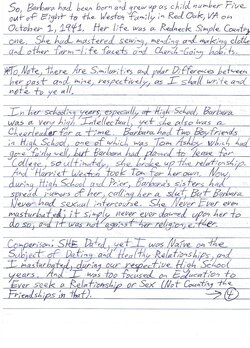 So, Barbara had been born and grew up as child number Five
out of Eight to the Weston Family in Red Oak, VA on
October 1, 1941. Her life was a Redneck Simple Country
one. She had mastered sewing, mending and making clothes
and other Farm-life facets and Church-Going habits.
To Note, There Are Similarities and polar Differences between
her past and mine, respectively, as I shall write and
note to ye all.
In her schooling years, especially at High School, Barbara
was a very high Intellectual, yet she also was a
Cheerleader for a time. Barbara had Two Boyfriends
in High School, one of which was Tom Ashby which had
gone fairly well, but Barbara had planned to leave for
College, so ultimately, she broke up the relationship.
And Harriet Weston took Tom for her own. Now,
during High School and Prior, Barbara's sisters had
spread rumors of her, calling her a slut. But Barbara
Never had sexual intercourse. She Never Ever even
masturbated; it simply never ever dawned upon her to
do so, and it was not against her religion, either.
Comparison: SHE Dated, yet I was Naive on the
Subject of Dating and Healthy Relationships, and
I masturbated, during our respective High School
years. And I was too focused on Education to
Ever seek a Relationship or Sex (Not Counting the
Friendships in That).
4